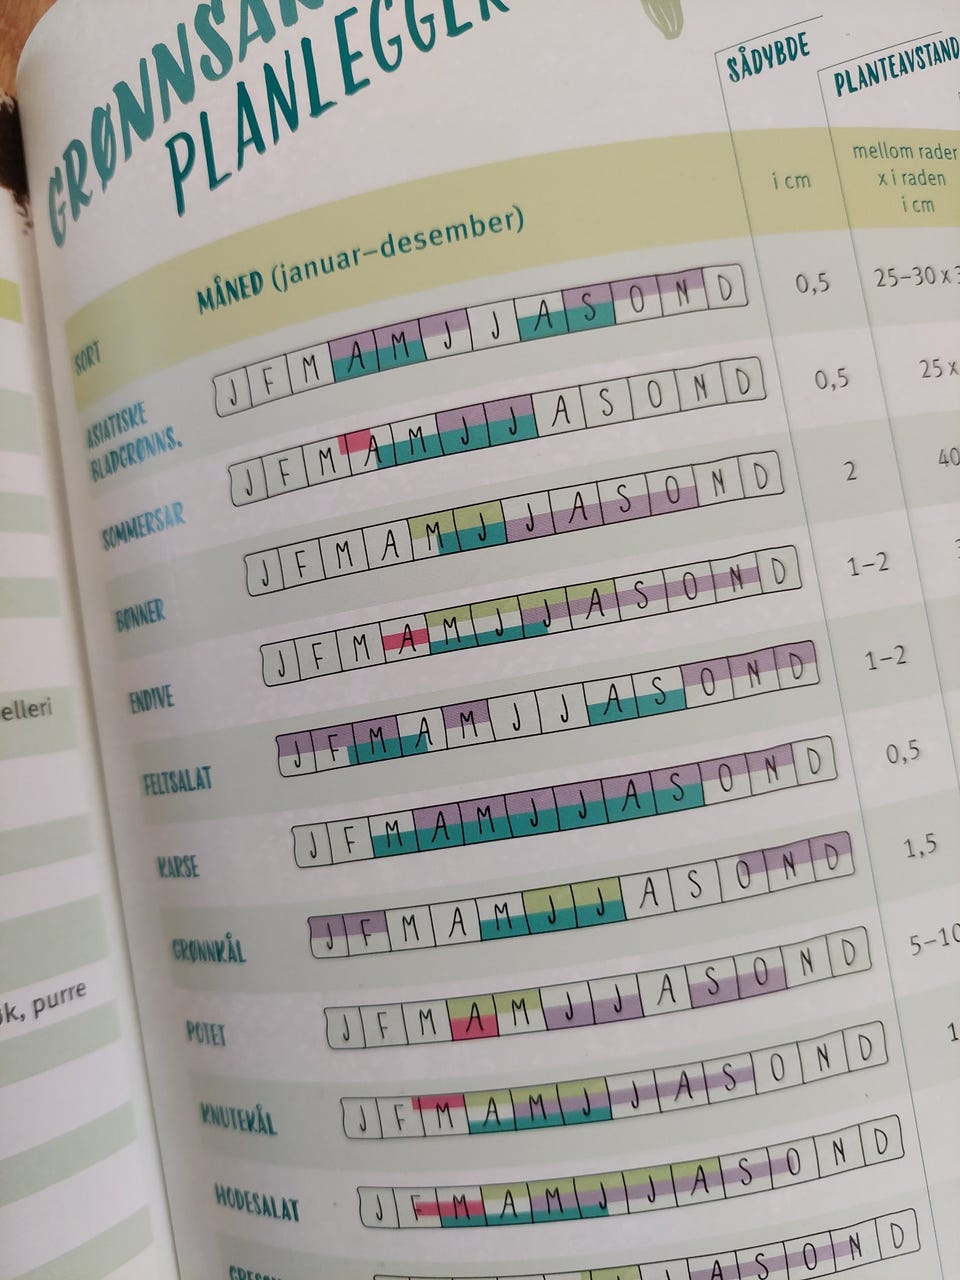 GRØNNSAK
PLANLEGGER
SÅDYBDE
PLANTEAVSTAND
SORT
MÅNED (januar–desember)
i cm
mellom rader
x i raden
i cm
ASIATISKE
BLADGRØNNS.
J F M A M J J A S O N D
0,5
25–30 x
SOMMERSAR
J F M A M J J A S O N D
0,5
25 x
BØNNER
J F M A M J J A S O N D
2
40
ENDIVE
J F M A M J J A S O N D
1–2
FELTSALAT
J F M A M J J A S O N D
1–2
KARSE
J F M A M J J A S O N D
0,5
GRØNNKÅL
J F M A M J J A S O N D
1,5
POTET
J F M A M J J A S O N D
5–10
KNUTEKÅL
J F M A M J J A S O N D
1
HODESALAT
J F M A M J J A S O N D
J A S O N D
elleri
øk, purre